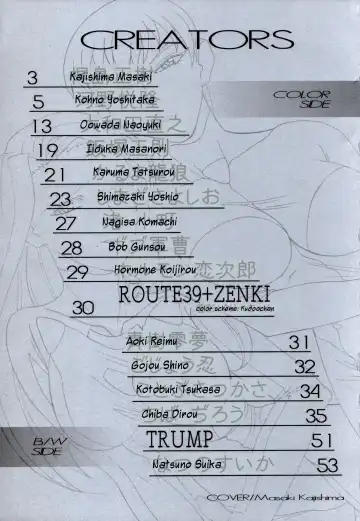 CREATORS
3 Kajishima Masaki
梶島正樹
COLOR SIDE
5 Kohno Yoshitaka
河野悦隆
13 Oowada Naoyuki
19 Iiduka Masanori
飯塚正則
21 Karuma Tatsurou
かるま龍狼
23 Shimazaki Yoshio
27 Nagisa Komachi
28 Bob Gunsou
29 Hormone Koijirou
ホルモン恋次郎
30 ROUTE39+ZENKI
color scheme: Kudoochan
Aoki Reimu 31
青樹霊夢
Gojou Shino 32
Kotobuki Tsukasa 34
Chiba Dirou 35
B/W SIDE
TRUMP 51
Natsuno Suika 53
なつのすいか
COVER//Masaki Kajishima